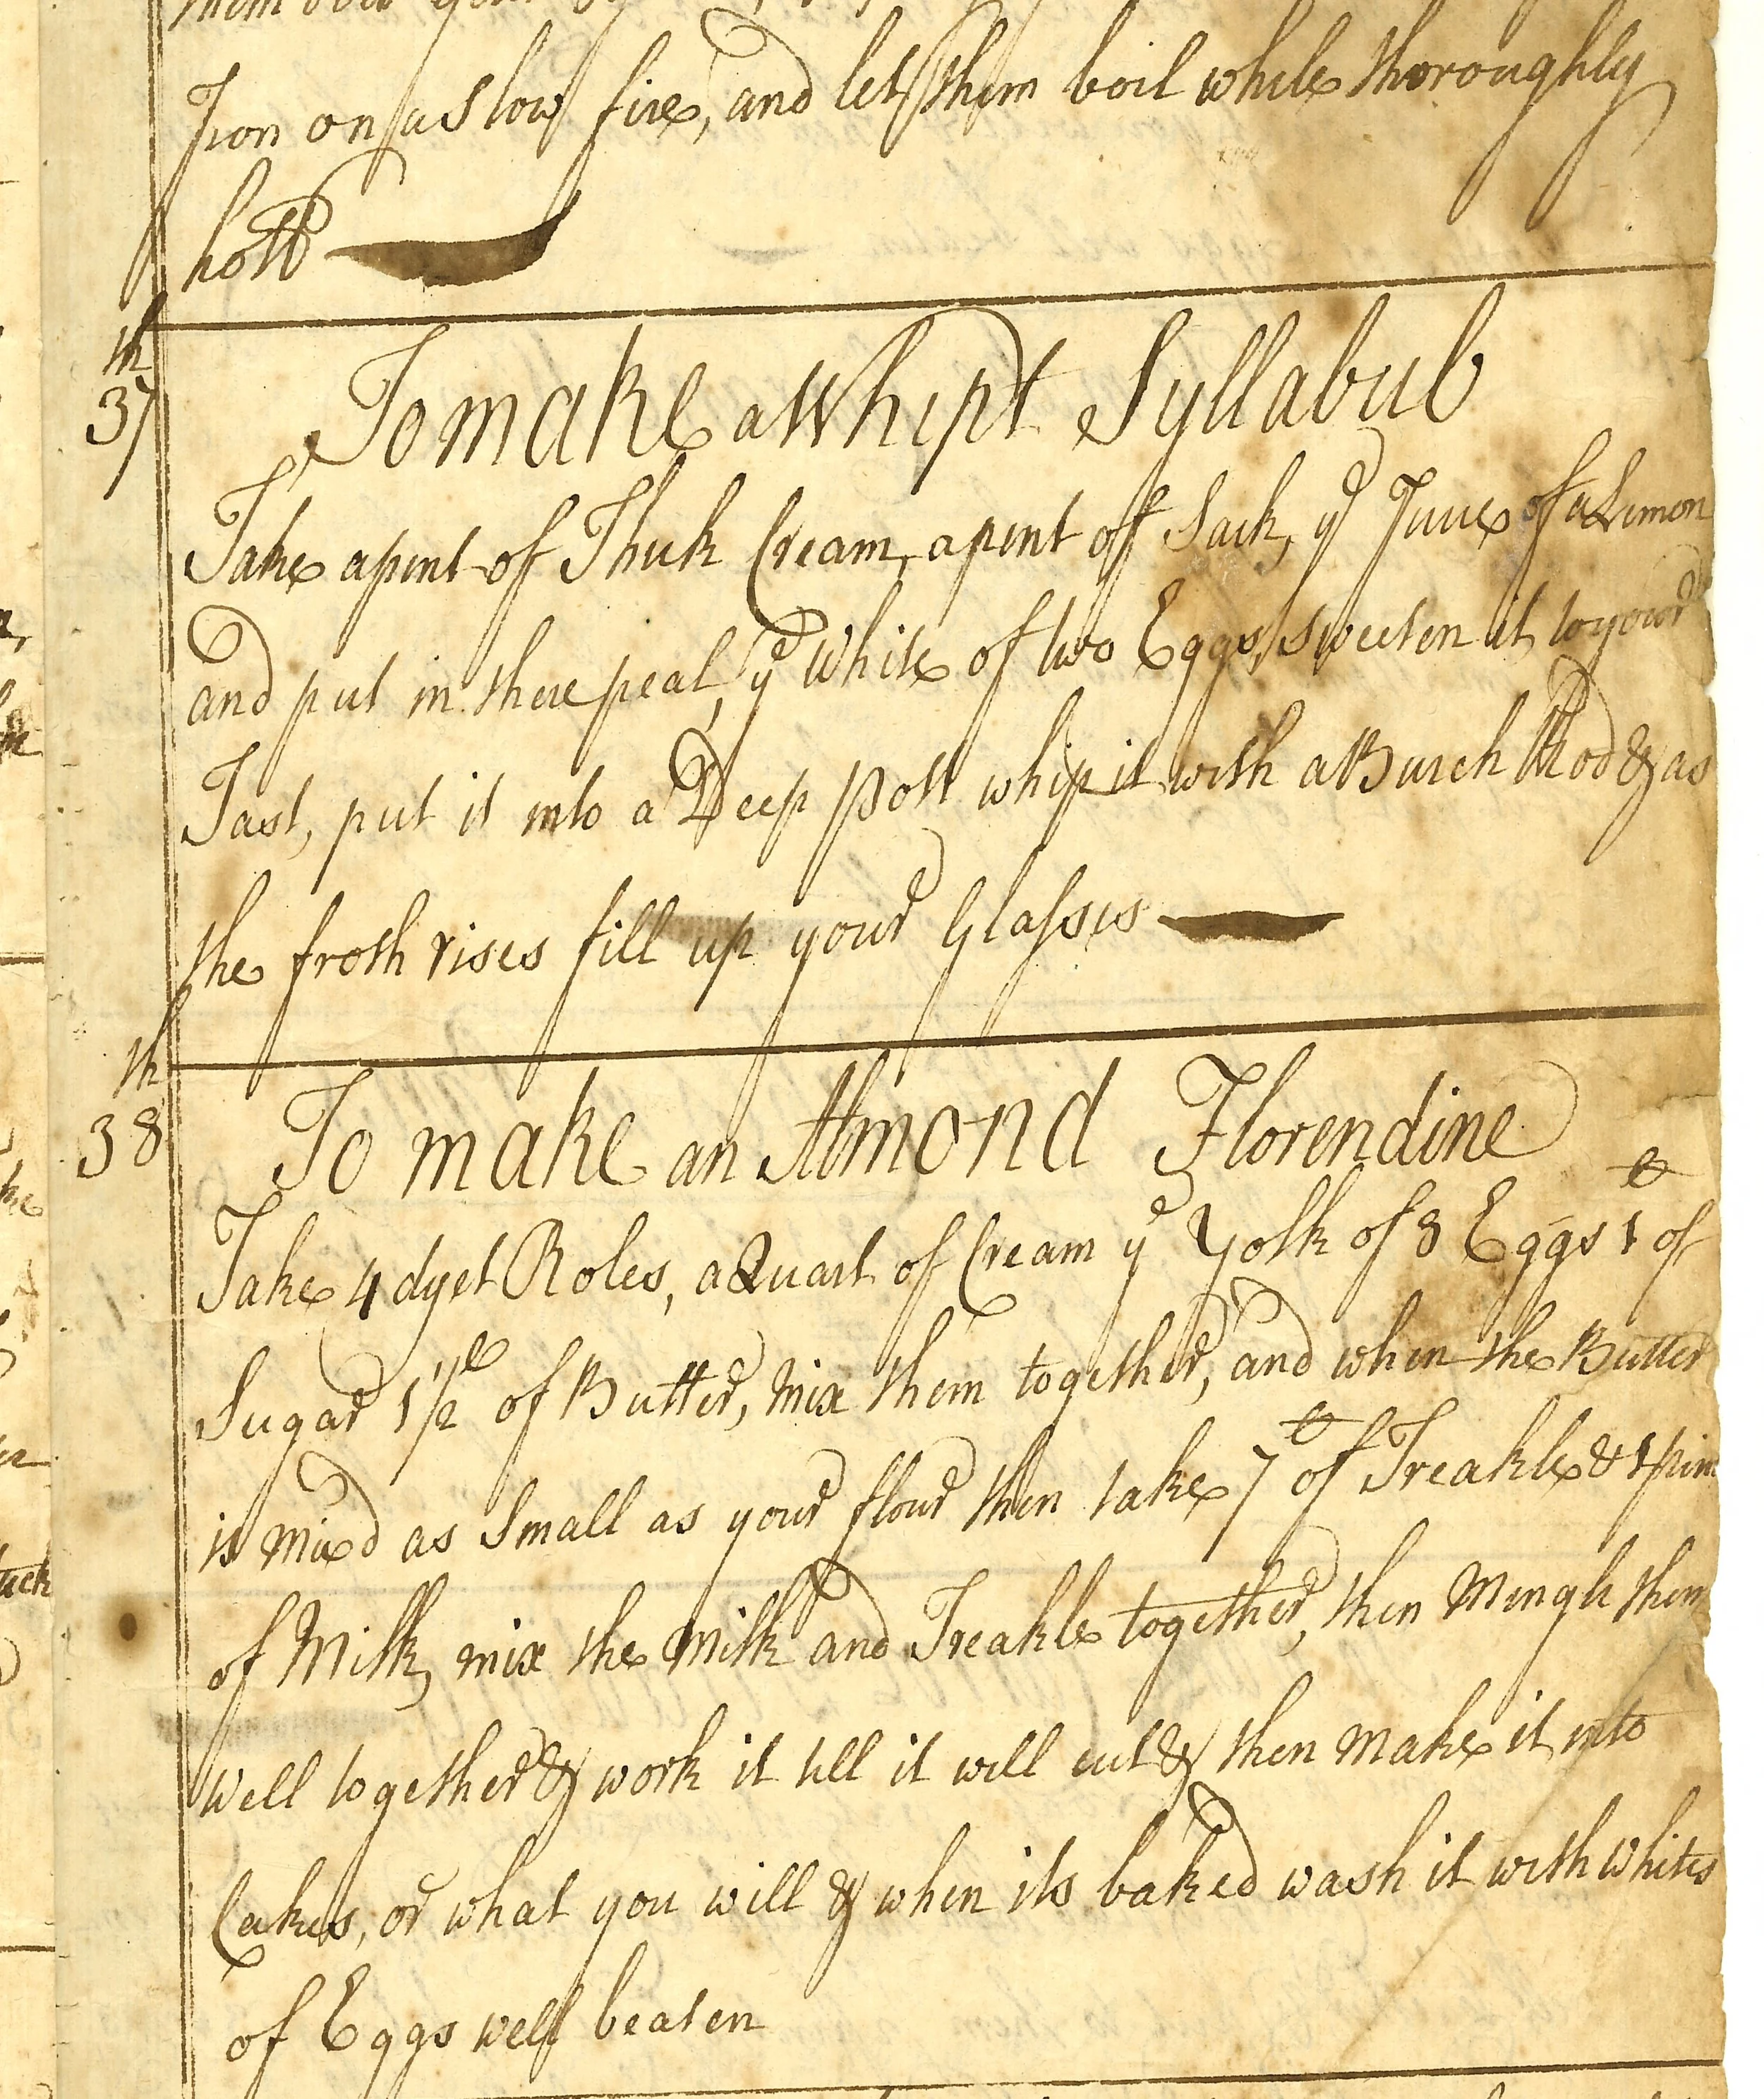 Iron on a Slow fire, and let them boil while thoroughly
hott
37th
To make a Whipt Syllabub
Take a pint of Thick Cream, a pint of Sack, ye Juice of a Lemon
and put in there peal, ye White of two Eggs, sweeten it to your
Tast, put it into a Deep Pott whip it with a Burch Rod & as
the froth rises fill up your Glasses
38th
To make an Almond Florendine
Take 4 dyet Roles, a Quart of Cream ye Yolk of 8 Eggs 1 lb of
Sugar 1 1/2 lb of Butter, Mix them together, and when the Butter
is Mixd as Small as your flour then take 7 lb of Treakle & 1 pint
of Milk, mix the Milk and Treakle together, then Mingle them
Well together & work it till it will cut & then Make it into
Cakes, or what you will & when its baked wash it with Whites
of Eggs well beaten